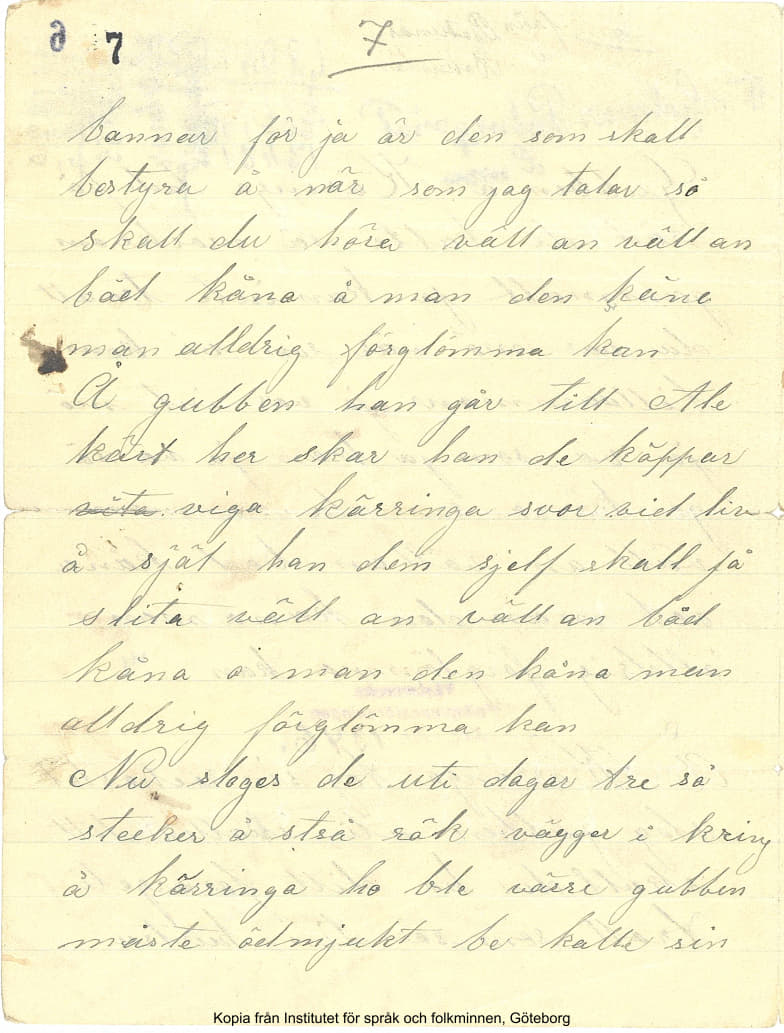 6 7 7
bannar för ja är den som skall
bestyra å när som jag talar så
skall du höra väll an väll an
båd kåna å man den kåna
man alldrig förglömma kan
Å gubben han går till Ale
kärt her skar han de käppar
viga kärringa svor vid liv
å själ han dem sjelf skall få
slita väll an väll an båd
kåna o man den kåna man
alldrig förglömma kan
Nu sloges de uti dagar tre så
stecker å strå rök vägger i kring
å kärringa ho ble värre gubben
måste ödmjukt be kalla sin
Kopia från Institutet för språk och folkminnen, Göteborg